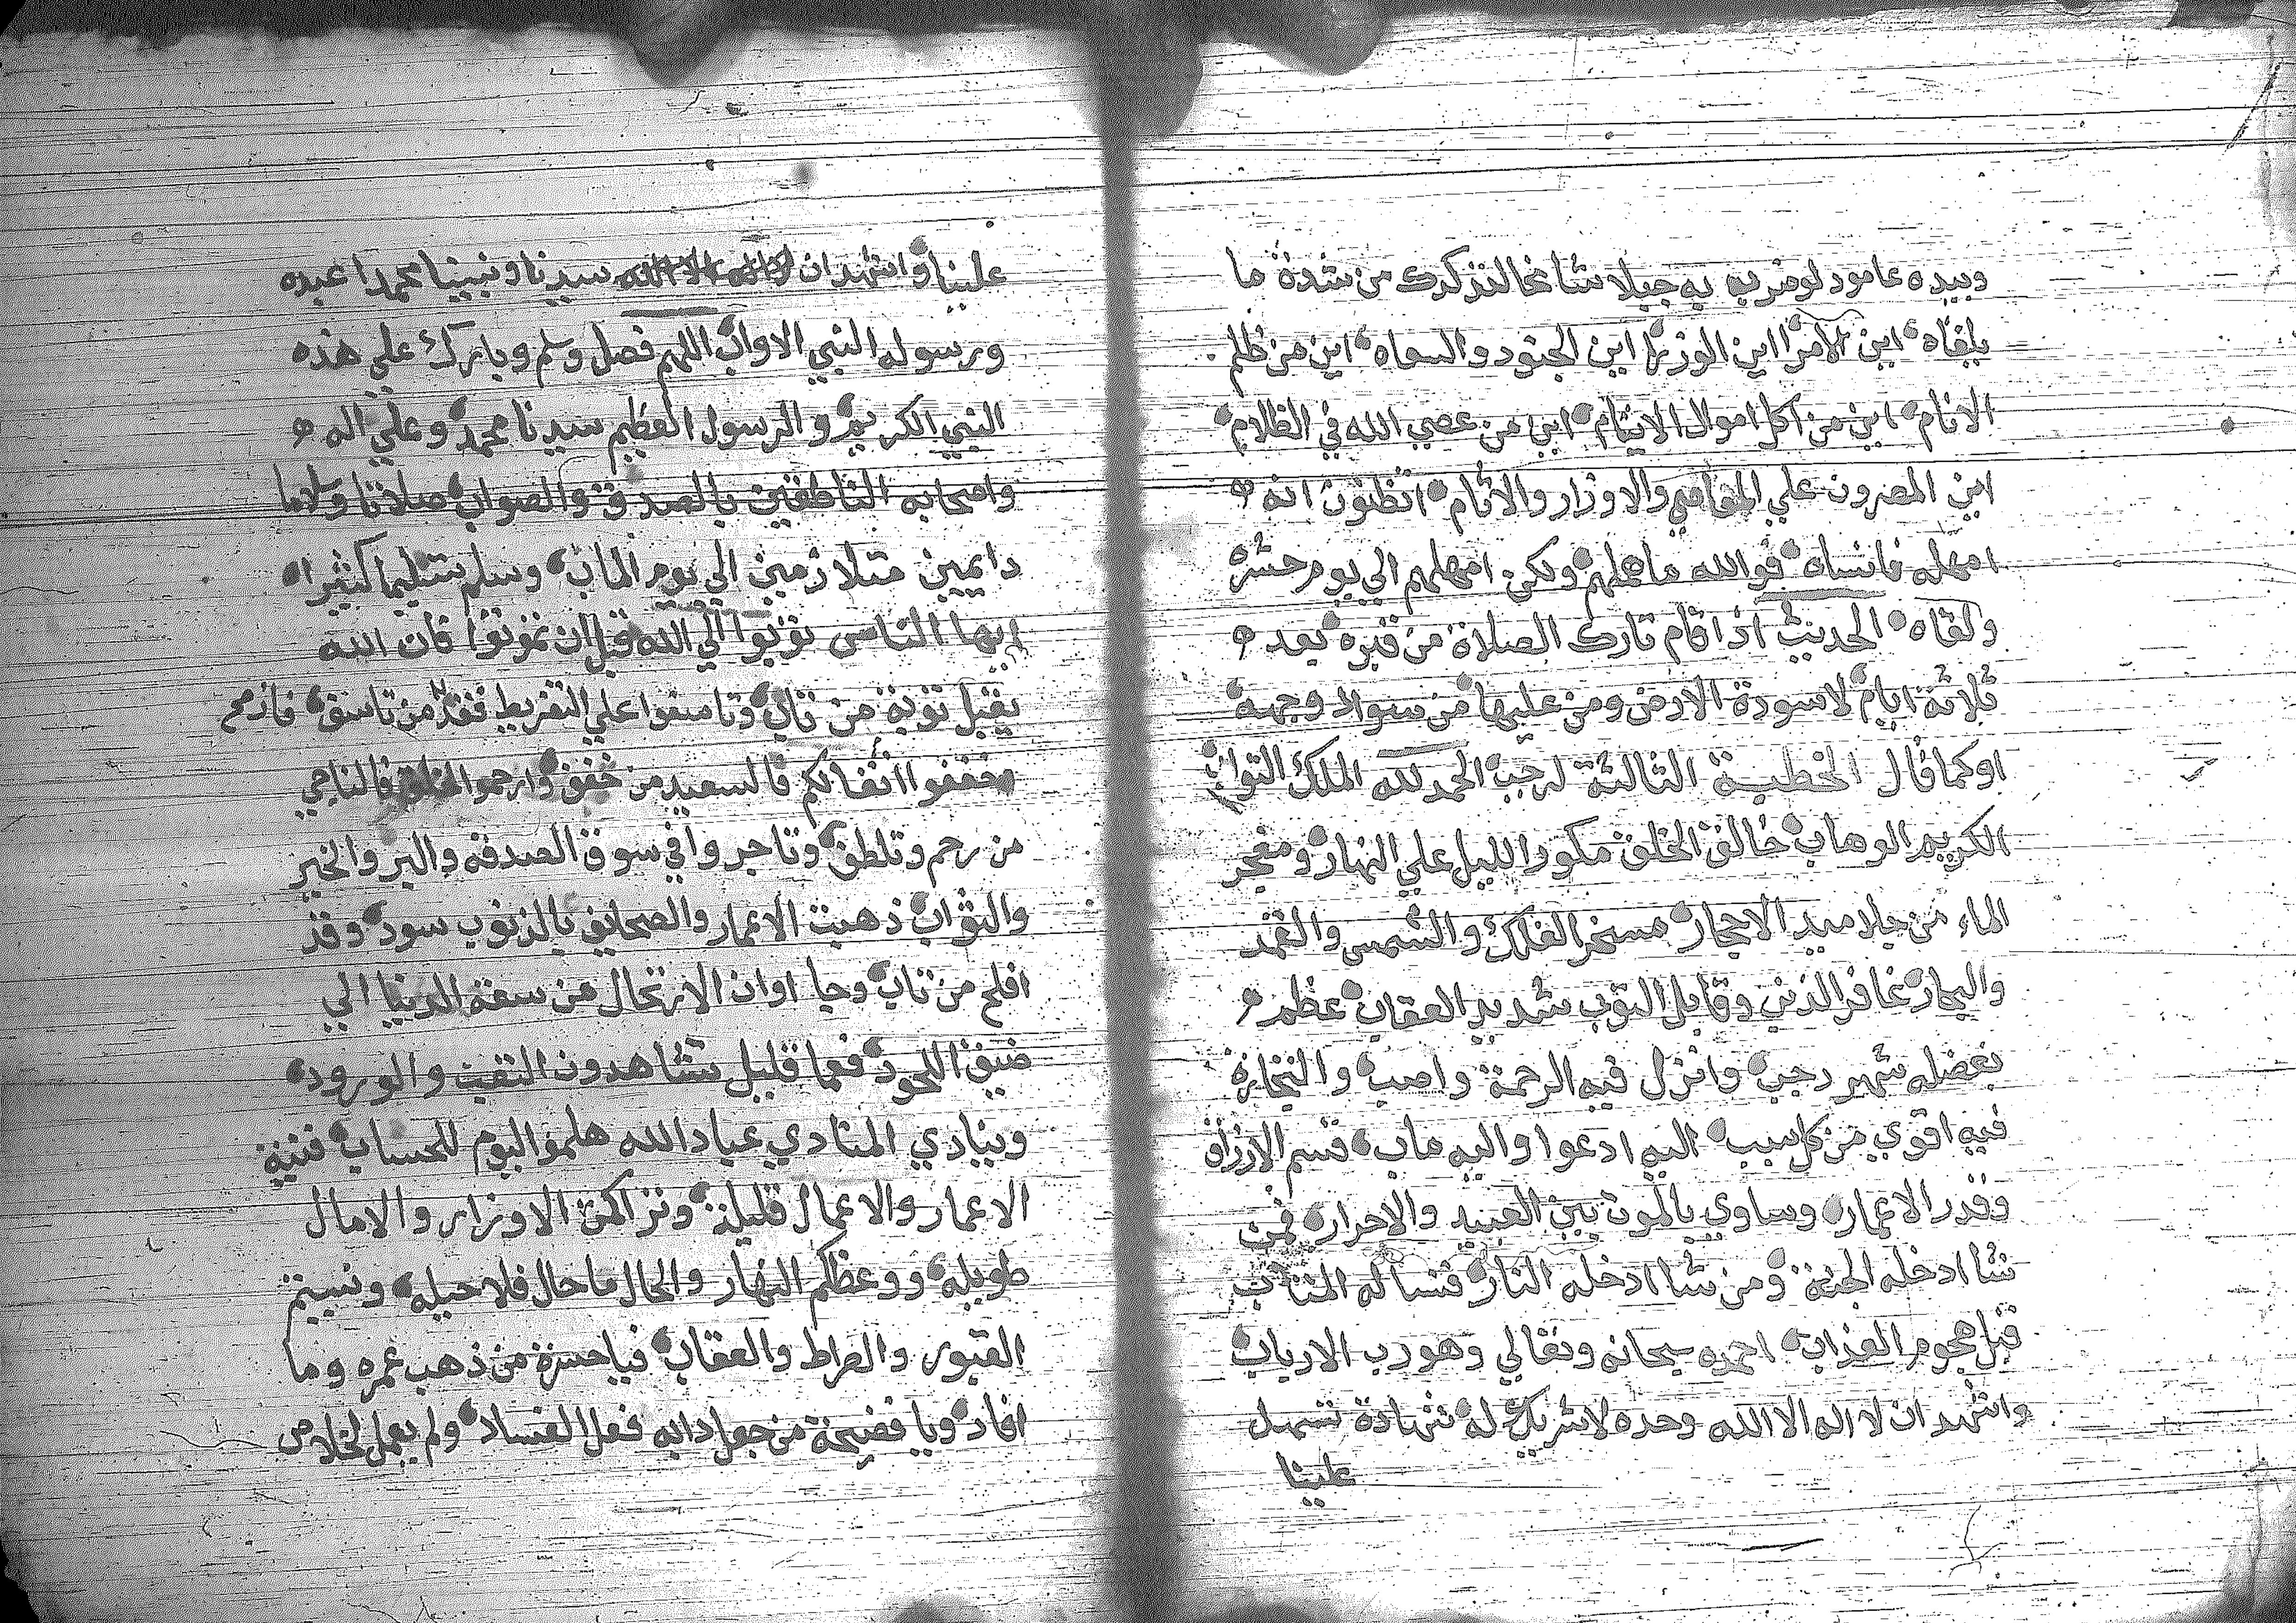 وبيده عامود لو ضرب به جبلا شامخا لتدكدك من شدة ما
يلقاه اين الامرا اين الوزرا اين الجنود والسعاه اين من ظلم
الانام اين من اكل اموال الايتام اين من عصي الله في الظلام
اين المصرون علي المعاصي والاوزار والاثام اتظنون انه
امهله فانساه فوالله ما هملهم ولكن امهلهم الي يوم حشره
ولقاه الحديث اذا قام تارك الصلاة من قبره بعد
ثلاثة ايام لاسودة الارض ومن عليها من سواد وجهه
اوكما قال الخطبة الثالثة لرجب الحمد لله الملك التواب
الكريم الوهاب خالق الخلق مكور الليل علي النهار ومفجر
الماء من جلاميد الاحجار مسخر الفلك والشمس والقمر
والبحار غافر الذنب وقابل التوب شديد العقاب عظم
بفضله شهر رجب وانزل فيه الرحمة واصب والتجارة
فيه اقوي من كل سبب اليه ادعوا واليه ماب قسم الارزاق
وقدر الاعمار وساوي بالموت بين العبيد والاحرار فمن
شا ادخله الجنة ومن شا ادخله النار فنساله المتاب
قبل هجوم العذاب احمده سبحانه وتعالي وهو رب الارباب
واشهد ان لا اله الا الله وحده لا شريك له شهادة تسهيل
علينا
علينا واشهد ان سيدنا ونبينا محمدا عبده
ورسوله النبي الاواب اللهم فصل وسلم وبارك علي هذه
النبي الكريم والرسول العظيم سيدنا محمد وعلي اله
واصحابه الناطقين بالصدق والصواب صلاتا وسلاما
دايمين متلازمين الي يوم الماب وسلم تسليما كثيرا
ايها الناس توبوا الي الله قبل ان تموتوا فان الله
يقبل توبة من تاب وتاسفوا علي التفريط فقد من تاسف
وخففوا اثقالكم فالسعيد من خفف وارحموا فالناجي
من رحم وتلطف وتاجروا في سوق الصدقه والبر والخير
والثواب ذهبت الاعمار والصحايف بالذنوب سود وقد
افلح من تاب وجا اوان الارتحال من سعة الدنيا الي
ضيق اللحود فعما قليل تشاهدون والورود
وينادي المنادي عباد الله هلموا اليوم للحساب فنية
الاعمار والاعمال قليلة وتراكمت الاوزار والامال
طويله ووعظكم النهار والحال ما حال فلا حيله ونسيتم
القبور والصراط والعقاب فيا حسرة من ذهب عمره وما
افاد ويا فضيحة من جعل دابه فعل الفساد ولم يعمل لخلاص